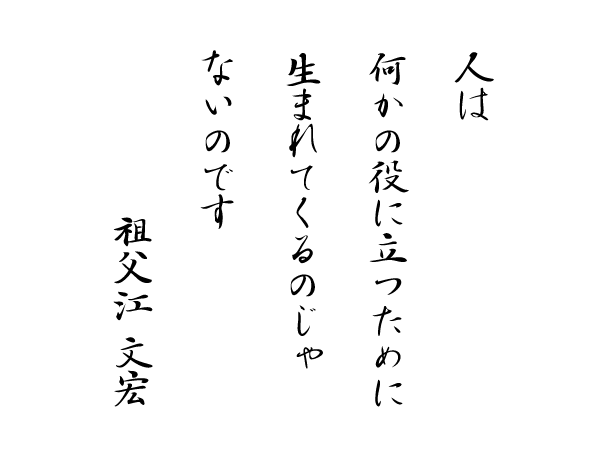 人は
何かの役に立つために
生まれてくるのじゃ
ないのです
祖父江 文宏